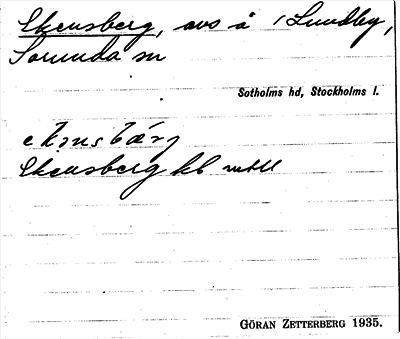 Ekensberg, avs å Lundby,
Sorunda sn
Sotholms hd, Stockholms l.
Ekensberg kb
GÖRAN ZETTERBERG 1935.